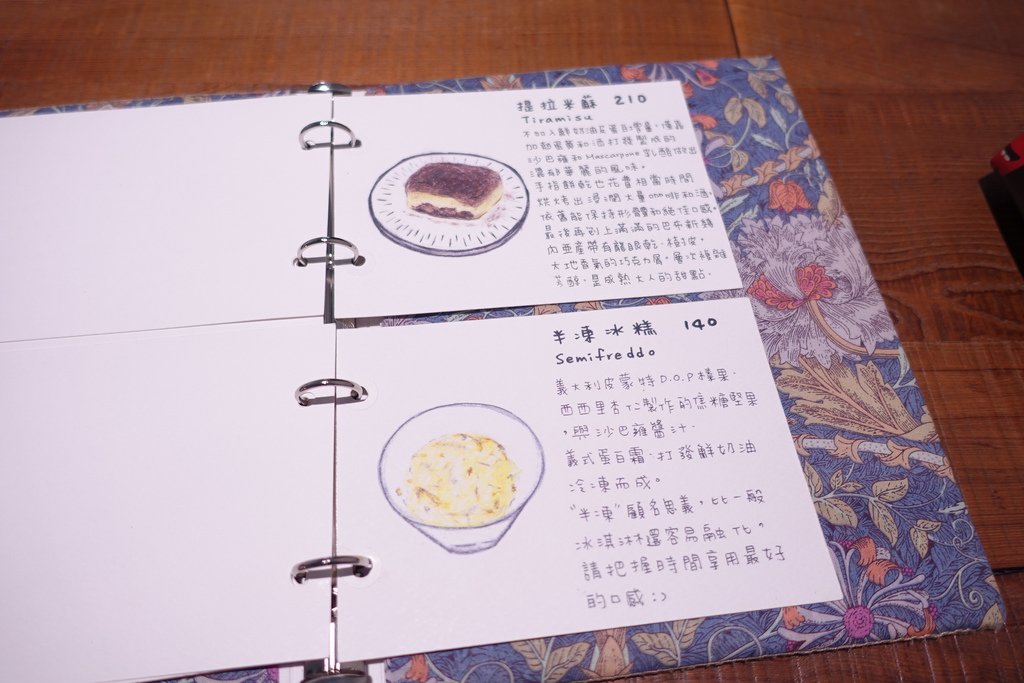 提拉米蘇 210
Tiramisu
不加入鮮奶油及蛋白霜,僅靠
加熱蛋黃和酒打發製成的
沙巴雍和 Mascarpone 乳酪做出
濃郁華麗的風味。
手指餅乾也花費相當時間
烘烤出浸潤大量咖啡和酒,
依舊能保持形體和絕佳口感。
最後再刨上滿滿的巴布新幾
內亞產帶有龍眼乾、樹皮,
大地香氣的巧克力屑。層次複雜
芳醇,是成熟大人的甜點.
半凍冰糕 140
Semifreddo
義大利皮蒙特 D.O.P 榛果.
西西里杏仁製作的焦糖堅果
,與沙巴雍醬汁.
義式蛋白霜.打發鮮奶油
冷凍而成。
"半凍"顧名思義,比一般
冰淇淋還容易融化。
請把握時間享用最好
的口感:)